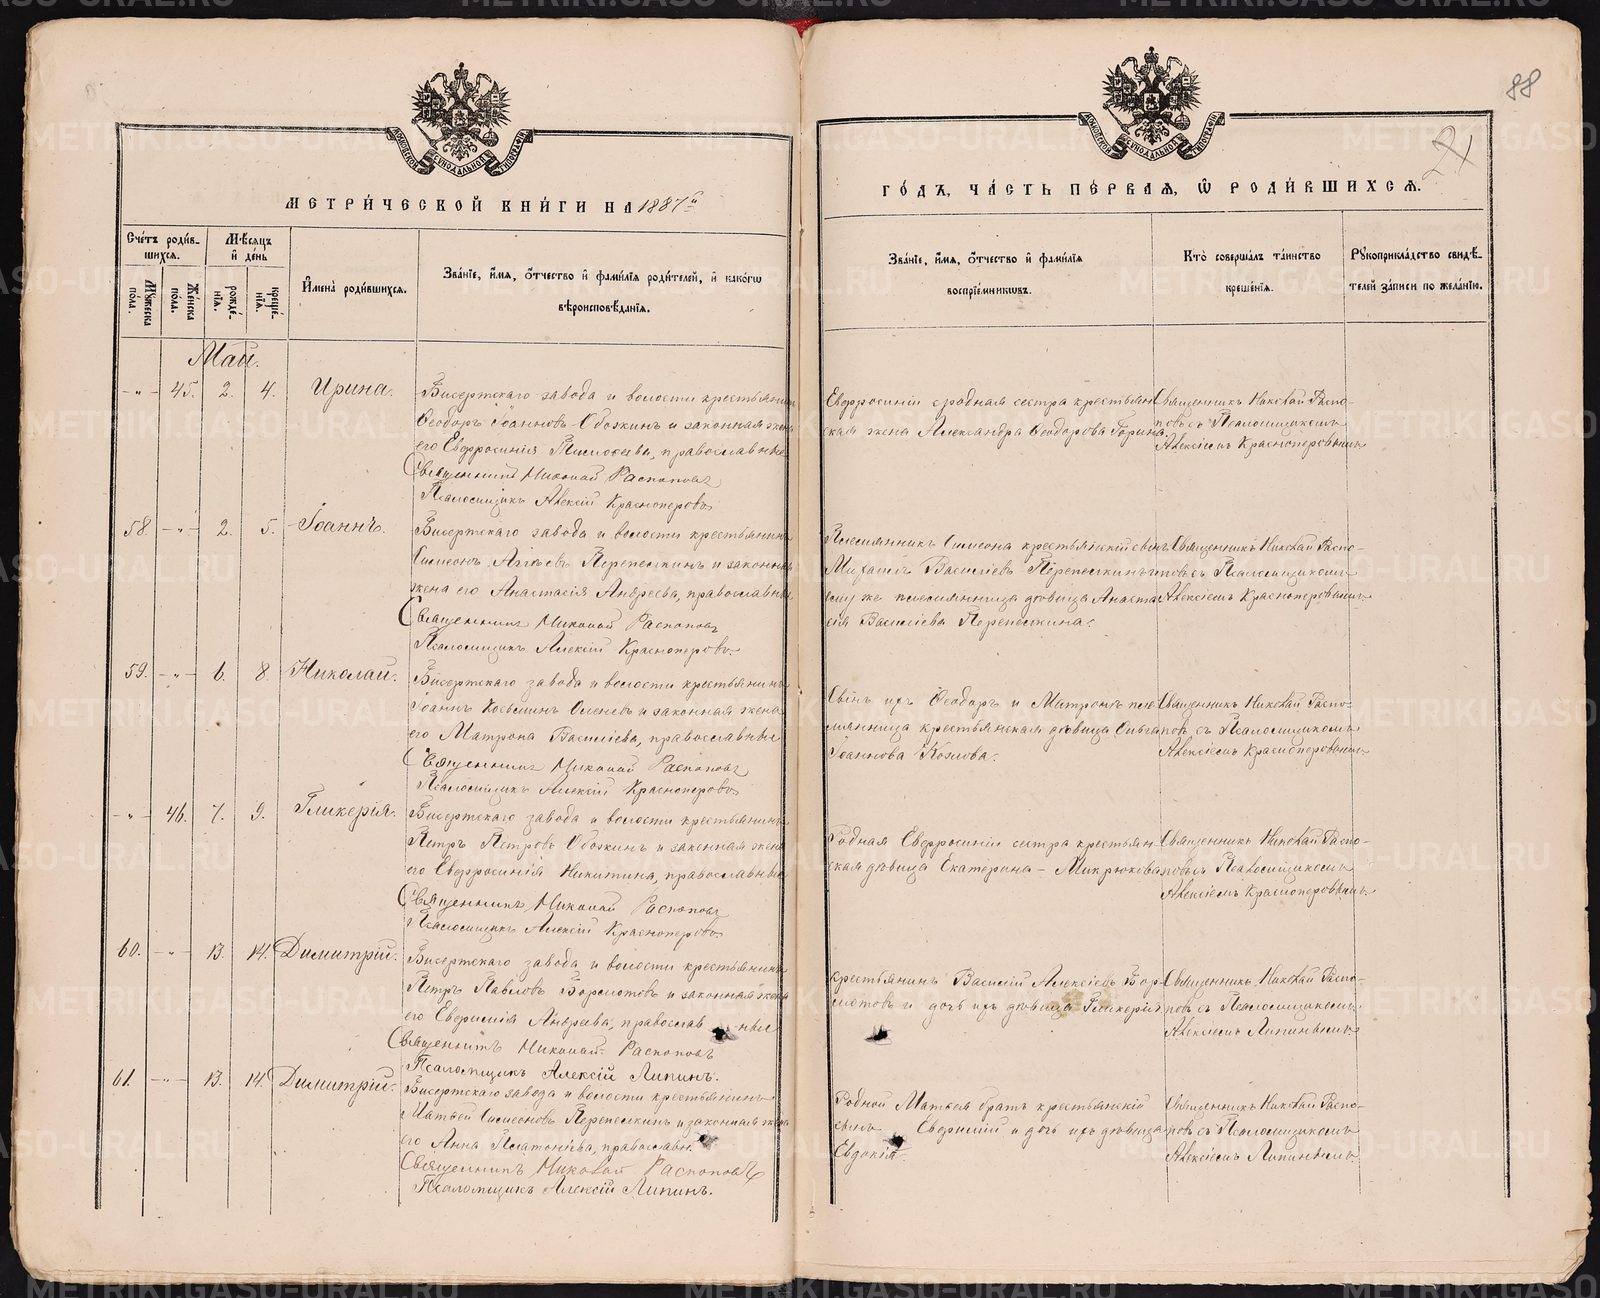 88
21
МЕТРИ́ЧЕСКОЙ КНИ́ГИ НА 1887 й
ГО́ДЪ, ЧА́СТЬ ПЕ́РВАЯ, Ѡ РОДИ́ВШИХСЯ.
Сче́тъ роди́в-
шихся.
Му́жеска пола.
Же́нска пола.
Мѣ́сяцъ
и̂ де́нь
рожде́-
нїя.
креще́-
нїя.
И̂мена̀ роди́вшихся.
Зва́нїе, и́мя, о́тчество и̂ фами́лїя роди́телей, и̂ како́гѡ
вѣроисповѣ́данїя.
Зва́нїе, и́мя, о́тчество и̂ фами́лїя
воспрїе́мникѡвъ.
Кто̀ соверша́лъ та́инство
креще́нїя.
Рꙋкоприкла́дство свидѣ́-
телей за́писи по жела́нїю.
Май.
-"- 45. 2. 4. Ирина.
Бисертскаго завода и волости крестьянинъ
Ѳеодоръ Іоанновъ Обоскинъ и законная жена
его Евфросинія Тимоѳеева, православные
Священникъ Николай Распоповъ
Псаломщикъ Алексій Красноперовъ
Евфросиніи сродная сестра крестьян-
ская жена Александра Ѳеодорова
Священникъ Николай Распо-
повъ съ Псаломщикомъ
Алексіемъ Красноперовымъ
58. -"- 2. 5. Іоаннъ.
Бисертскаго завода и волости крестьянинъ
Симеонъ Перепелкинъ и законная
жена его Анастасія Андреева, православные
Священникъ Николай Распоповъ
Псаломщикъ Алексій Красноперовъ
Племянникъ Симеона крестьянскій сынъ
Михаилъ Васильевъ Перепелкинъ и
ему же племянница дѣвица Анаста-
сія Васильева Перепелкина.
Священникъ Николай Распо-
повъ съ Псаломщикомъ
Алексіемъ Красноперовымъ
59. -"- 6. 8. Николай.
Бисертскаго завода и волости крестьянинъ
Іоаннъ Козьминъ Оленевъ и законная жена
его Матрона Васильева, православные
Священникъ Николай Распоповъ
Псаломщикъ Алексій Красноперовъ
Сынъ ихъ Ѳеодоръ и Матроны пле-
мянница крестьянская дѣвица Ольга
Іоаннова Козлова.
Священникъ Николай Распо-
повъ съ Псаломщикомъ
Алексіемъ Красноперовымъ
-"- 46. 7. 9. Гликерія.
Бисертскаго завода и волости крестьянинъ
Петръ Петровъ Обоскинъ и законная жена
его Евфросинія Никитина, православные
Священникъ Николай Распоповъ
Псаломщикъ Алексій Красноперовъ
Родная Евфросиніи сестра крестьян-
ская дѣвица Екатерина Микрюкова
Священникъ Николай Распо-
повъ съ Псаломщикомъ
Алексіемъ Красноперовымъ
60. -"- 13. 14. Димитрій.
Бисертскаго завода и волости крестьянинъ
Петръ Павловъ Бормотовъ и законная жена
его Евфимія Андреева, православные
Священникъ Николай Распоповъ
Псаломщикъ Алексій Липинъ.
Крестьянинъ Василій Алексіевъ Бор-
мотовъ и дочь ихъ дѣвица Гликерія
Священникъ Николай Распо-
повъ съ Псаломщикомъ
Алексіемъ Липинымъ
61. -"- 13. 14. Димитрій.
Бисертскаго завода и волости крестьянинъ
Матвей Симеоновъ Перепелкинъ и законная жена
его Анна Платонова, православн.
Священникъ Николай Распоповъ
Псаломщикъ Алексій Липинъ.
Родной Матвея братъ крестьянскій
сынъ Евфимій и дочь ихъ дѣвица
Евдокія.
Священникъ Николай Распо-
повъ съ Псаломщикомъ
Алексіемъ Липинымъ
METRIKI.GASO-URAL.RU